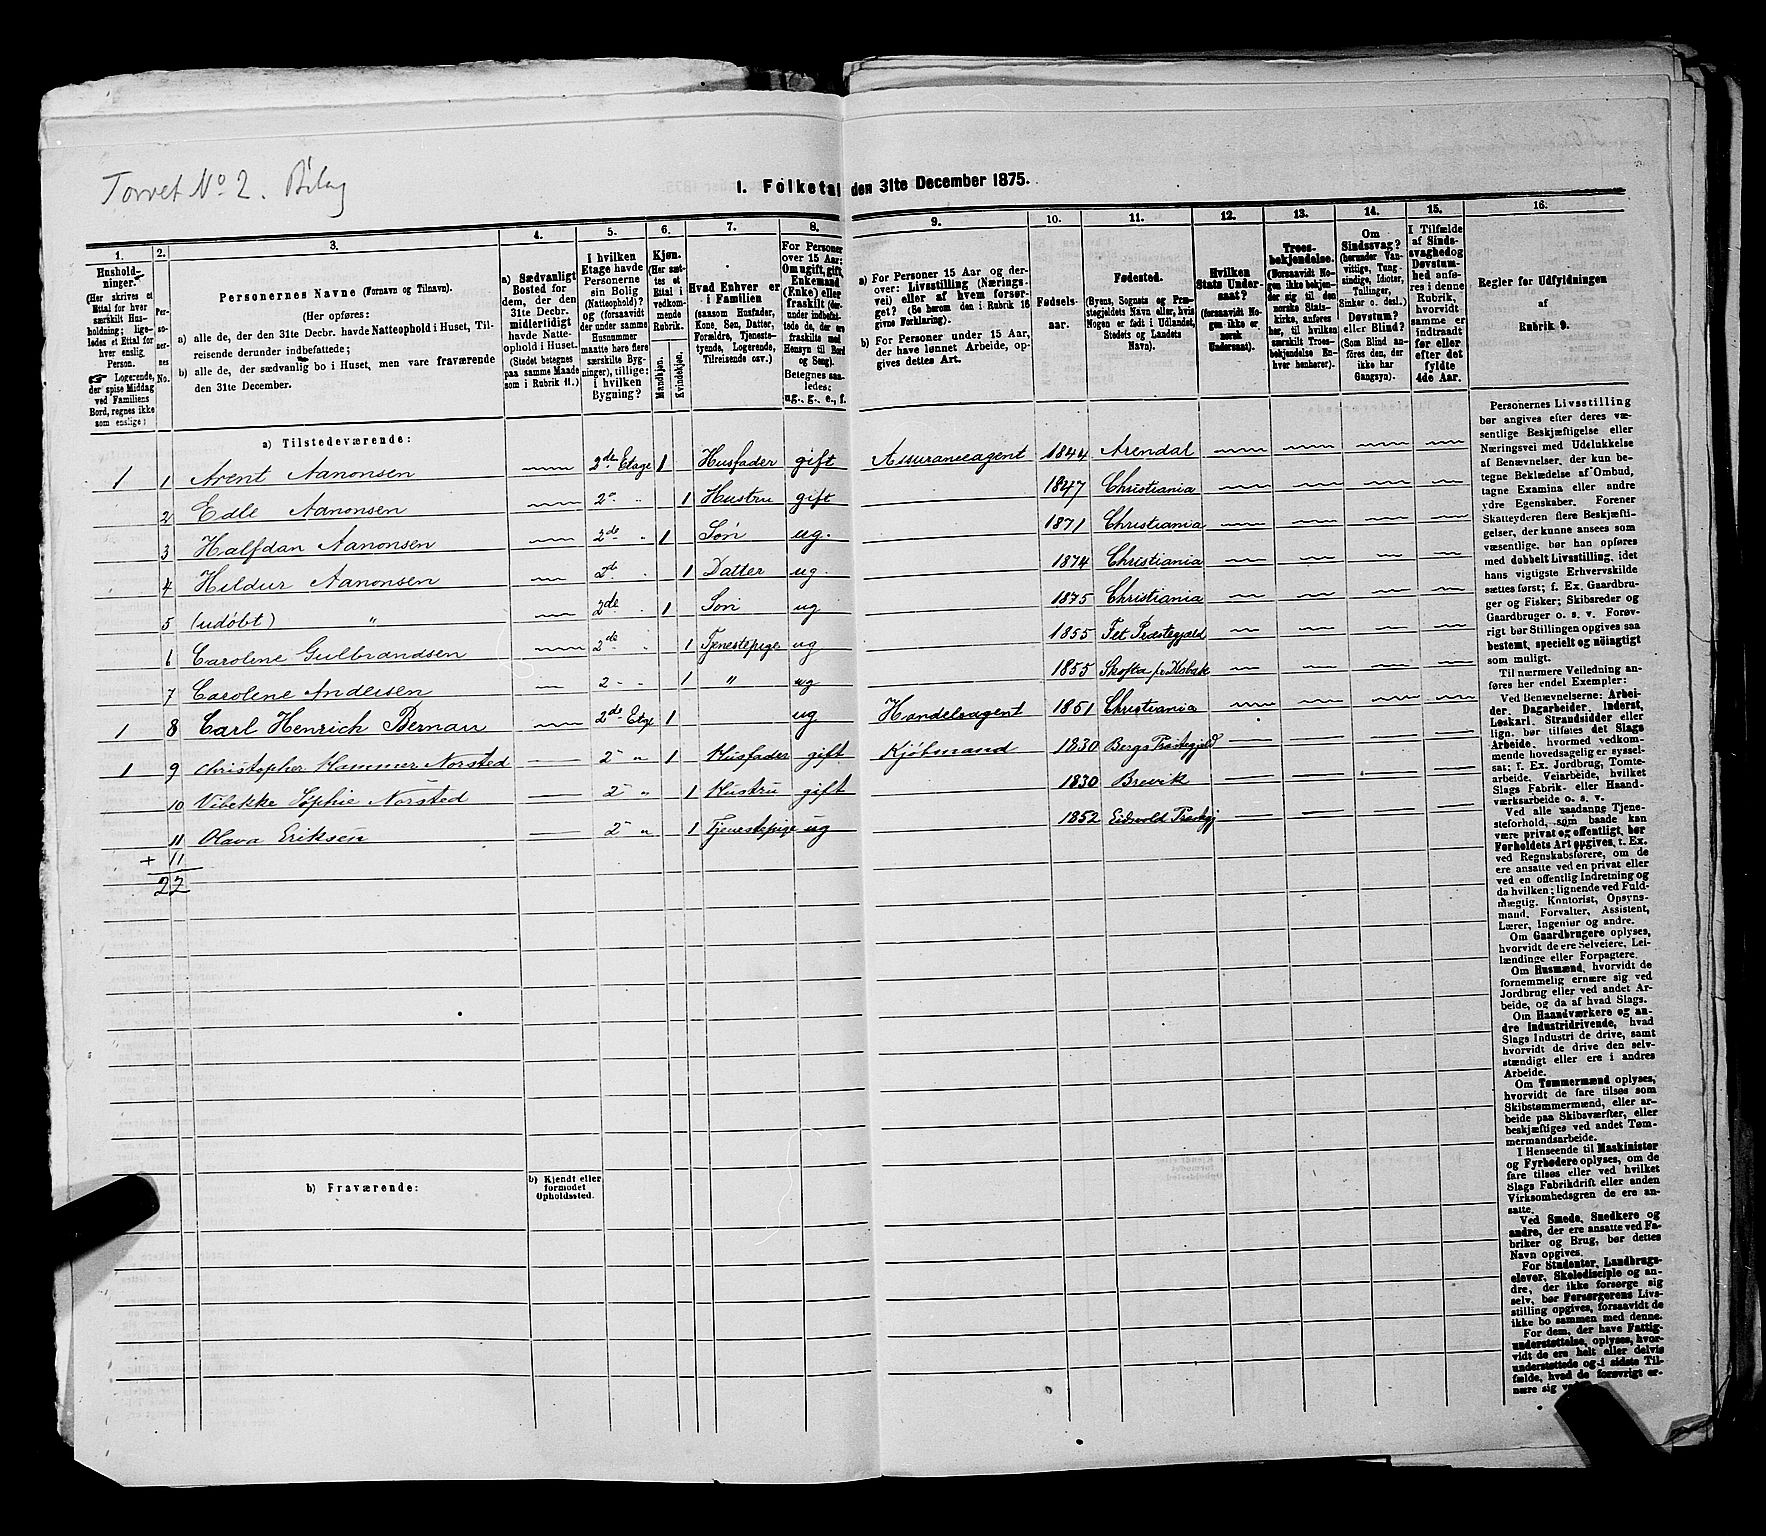 Torvet No 2. Bilag
I. Folketal den 31te December 1875.
1.
Hushold-
ninger.
(Her skrives et
Ettal for hver
særskilt Hus-
holdning; lige-
ledes et Ettal for
hver enslig
Person.
☞ Logerende,
der spise Middag
ved Familiens
Bord, regnes ikke
som enslige)
2.
Per-
so-
ner-
nes
No.
3.
Personernes Navne (Fornavn og Tilnavn).
(Her opføres:
a) alle de, der den 31te Decbr. havde Natteophold i Huset, Til-
reisende derunder indbefattede;
b) alle de, der sædvanlig bo i Huset, men vare fraværende
den 31te December.
4.
a) Sædvanligt
Bosted for
dem, der den
31te Decbr.
midlertidigt
havde Natte-
ophold i Huset.
(Stedet betegnes
paa samme Maade
som i Rubrik 11.)
5.
I hvilken
Etage havde
Personerne
sin Bolig
(Natteophold)?
(forsaavidt
der under samme
Husnummer
maatte høre flere
særskilte Byg-
ninger), tillige:
i hvilken
Bygning?
6.
Kjøn.
(Her sæt-
tes et
Ettal i
vedkom-
mende
Rubrik.
Mandkjøn.
Kvindekjøn.
7.
Hvad Enhver er
i Familien
(saasom Husfader,
Kone, Søn, Datter,
Forældre, Tjeneste-
tyende, Logerende,
Tilreisende osv.)
8.
For Personer
over 15 Aar:
Om ugift, gift,
Enkemand
(Enke) eller
fraskilt (der-
under indbefat-
tede de, der ere
fraskilte med
Hensyn til Bord
og Seng).
Betegnes saa-
ledes:
ug., g., e., f.
9.
a) For Personer 15 Aar og der-
over: Livsstilling (Nærings-
vei) eller af hvem forsør-
get? (Se herom den i Rubrik 16
givne Forklaring).
b) For Personer under 15 Aar,
der have lønnet Arbeide, op-
gives dettes Art.
10.
Fødsels-
aar.
11.
Fødested.
(Byens, Sognets og Præ-
stegjeldets Navn, eller, hvis
Nogen er født i Udlandet,
Stedets og Landets
Navn).
12.
Hvilken
Stats Under-
saat?
(forsaavidt No-
gen ikke er
norsk
Undersaat).
13.
Troes-
bekjendelse.
(Forsaavidt No-
gen ikke bekjen-
der sig til den
norske Stats-
kirke, anføres
her, til hvilken
særskilt Troes-
bekjendelse En-
hver henhører).
14.
Om
Sindssvag?
(herunder Van-
vittige, Tung-
sindige, Idioter,
Tullinger,
Sinker o. desl.)
Døvstum?
eller Blind?
(Som Blind an-
føres den, der
ikke har
Gangsyn).
15.
I Tilfælde
af Sinds-
svaghed og
Døvstum-
hed anfø-
res i denne
Rubrik,
hvorvidt
samme er
indtraadt
før eller
efter det
fyldte
4de Aar.
16.
Regler for Udfyldningen
af
Rubrik 9.
a) Tilstedeværende:
1 1 Arent Aanonsen 2de Etage 1 Husfader gift Assuranceagent 1844 Arendal
2 Edle Aanonsen 2de " 1 Hustru gift 1847 Christiania
3 Halfdan Aanonsen 2de " 1 Søn ug. 1871 Christiania
4 Hildur Aanonsen 2de " 1 Datter ug. 1874 Christiania
5 (udøbt) " 2de " 1 Søn ug 1875 Christiania
6 Caroline Gulbrandsen 2de " 1 Tjenestepige ug 1855 Fet Præstegjæld
7 Caroline Andersen 2 - " 1 " ug 1855
1 8 Carl Henrich Bernau 2de Etge 1 ug Handelsagent 1851 Christiania
1 9 Christopher Hammer Norsted 2 - " 1 Husfader gift Kjøbmand 1830 Bergs Præstegjeld
10 Vibekke Sophie Norsted 2 - " 1 Hustru gift 1830 Brevik
11 Olava Eriksen 2 - " 1 Tjenestepige ug 1852 Eidsvold Præstgj
+ 11
22
b) Fraværende:
b) Kjendt eller
formodet
Opholdssted.
Personernes Livsstilling
bør angives efter deres væ-
sentlige Beskjæftigelse eller
Næringsvei med Udelukkelse
af Benævnelser, der kun be-
tegne Beklædelse af Ombud,
tagne Examina eller andre
ydre Egenskaber. Forener
Skatteyderen flere Beskjæfti-
gelser, der kunne ansees som
væsentlige, bør han opføres
med dobbelt Livsstilling, idet
hans vigtigste Erhvervskilde
sættes først; f. Ex. Gaardbru-
ger og Fisker; Skibsreder og
Gaardbruger o. s. v. Forøv-
rigt bør Stillingen opgives saa
bestemt, specielt og nöiagtigt
som muligt.
Til nærmere Veiledning an-
føres her endel Exempler:
Ved Benævnelserne: Arbei-
der, Dagarbeider, Inderst,
Løskarl, Strandsidder eller
lign. bør tilføies det Slags
Arbeide, hvormed vedkom-
mende hovedsagelig er syssel-
sat; f. Ex. Jordbrug, Tomte-
arbeide, Veiarbeide, hvilket
Slags Fabrik- eller Haand-
værksarbeide o. s. v.
Ved alle saadanne Tjene-
steforhold, som baade kan
være privat og offentligt, bør
Forholdets Art opgives, f. Ex.
ved Regnskabsførere, om de
ere ansatte ved en privat eller
ved en offentlig Indretning og
da hvilken; lignende ved Fuld-
mægtig, Kontorist, Opsyns-
mand, Forvalter, Assistent,
Lærer, Ingeniør og andre.
Om Gaardbrugere oplyses,
hvorvidt de ere Selveiere, Lei-
lændinge eller Forpagtere.
Om Husmænd, hvorvidt de
fornemmelig ernære sig ved
Jordbrug eller ved andet Ar-
beide, og da af hvad Slags.
Om Haandværkere og an-
dre Industridrivende, hvad
Slags Industri de drive, samt
hvorvidt de drive den selv-
stændigt eller ere i andres
Arbeide.
Om Tømmermænd oplyses,
hvorvidt de fare tilsøs som
Skibstømmermænd, eller ar-
beide paa Skibsværfter, eller
beskjæftiges ved andet Tøm-
mermandsarbeide.
I Henseende til Maskinister
og Fyrbødere oplyses, om de
fare tilsøs eller ved hvilket
Slags Fabrikdrift eller anden
Virksomhedsgren de ere an-
satte.
Ved Smede, Snedkere og
andre, der ere ansatte ved Fa-
briker og Brug, bør dettes
Navn opgives.
For Studenter, Landbrugs-
elever, Skoledisciple og an-
dre, der ikke forsørge sig
selv, bør Forsørgerens Livs-
stilling opgives, forsaavidt de
ikke bo sammen med denne.
For dem, der have Fattig-
understøttelse, oplyses, hvor-
vidt de ere helt eller delvis
understøttede og i sidste Til-
fælde, hvad de forøvrigt er-
nære sig